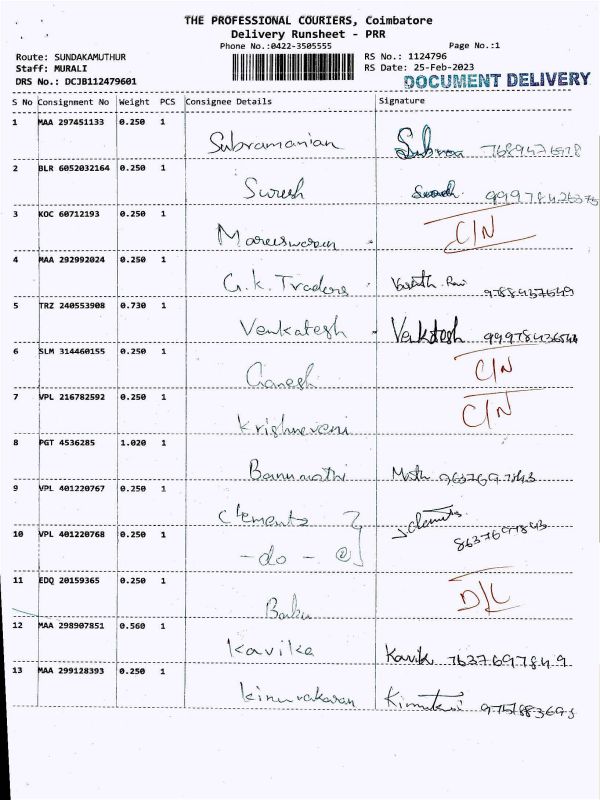 THE PROFESSIONAL COURIERS, Coimbatore
Delivery Runsheet - PRR
Phone No.:0422-3505555
Page No.:1
Route: SUNDAKAMUTHUR
RS No.: 1124796
Staff: MURALI
RS Date: 25-Feb-2023
DRS No.: DCJB112479601
DOCUMENT DELIVERY
S No Consignment No Weight PCS Consignee Details Signature
1 MAA 297451133 0.250 1
Subramanian
2 BLR 6052032164 0.250 1
Suresh Suresh
3 KOC 60712193 0.250 1
Mareeswaran C/N
4 MAA 292992024 0.250 1
G.K. Traders
5 TRZ 240553908 0.730 1
Venkatesh Venkatesh
6 SLM 314460155 0.250 1
Ganesh C/N
7 VPL 216782592 0.250 1
Krishnaveni C/N
8 PGT 4536285 1.020 1
Banumathi
9 VPL 401220767 0.250 1
Clements
10 VPL 401220768 0.250 1
-do-
11 EDQ 20159365 0.250 1
Babu D/L
12 MAA 298907851 0.560 1
Kavika Kavik 7637697849
13 MAA 299128393 0.250 1